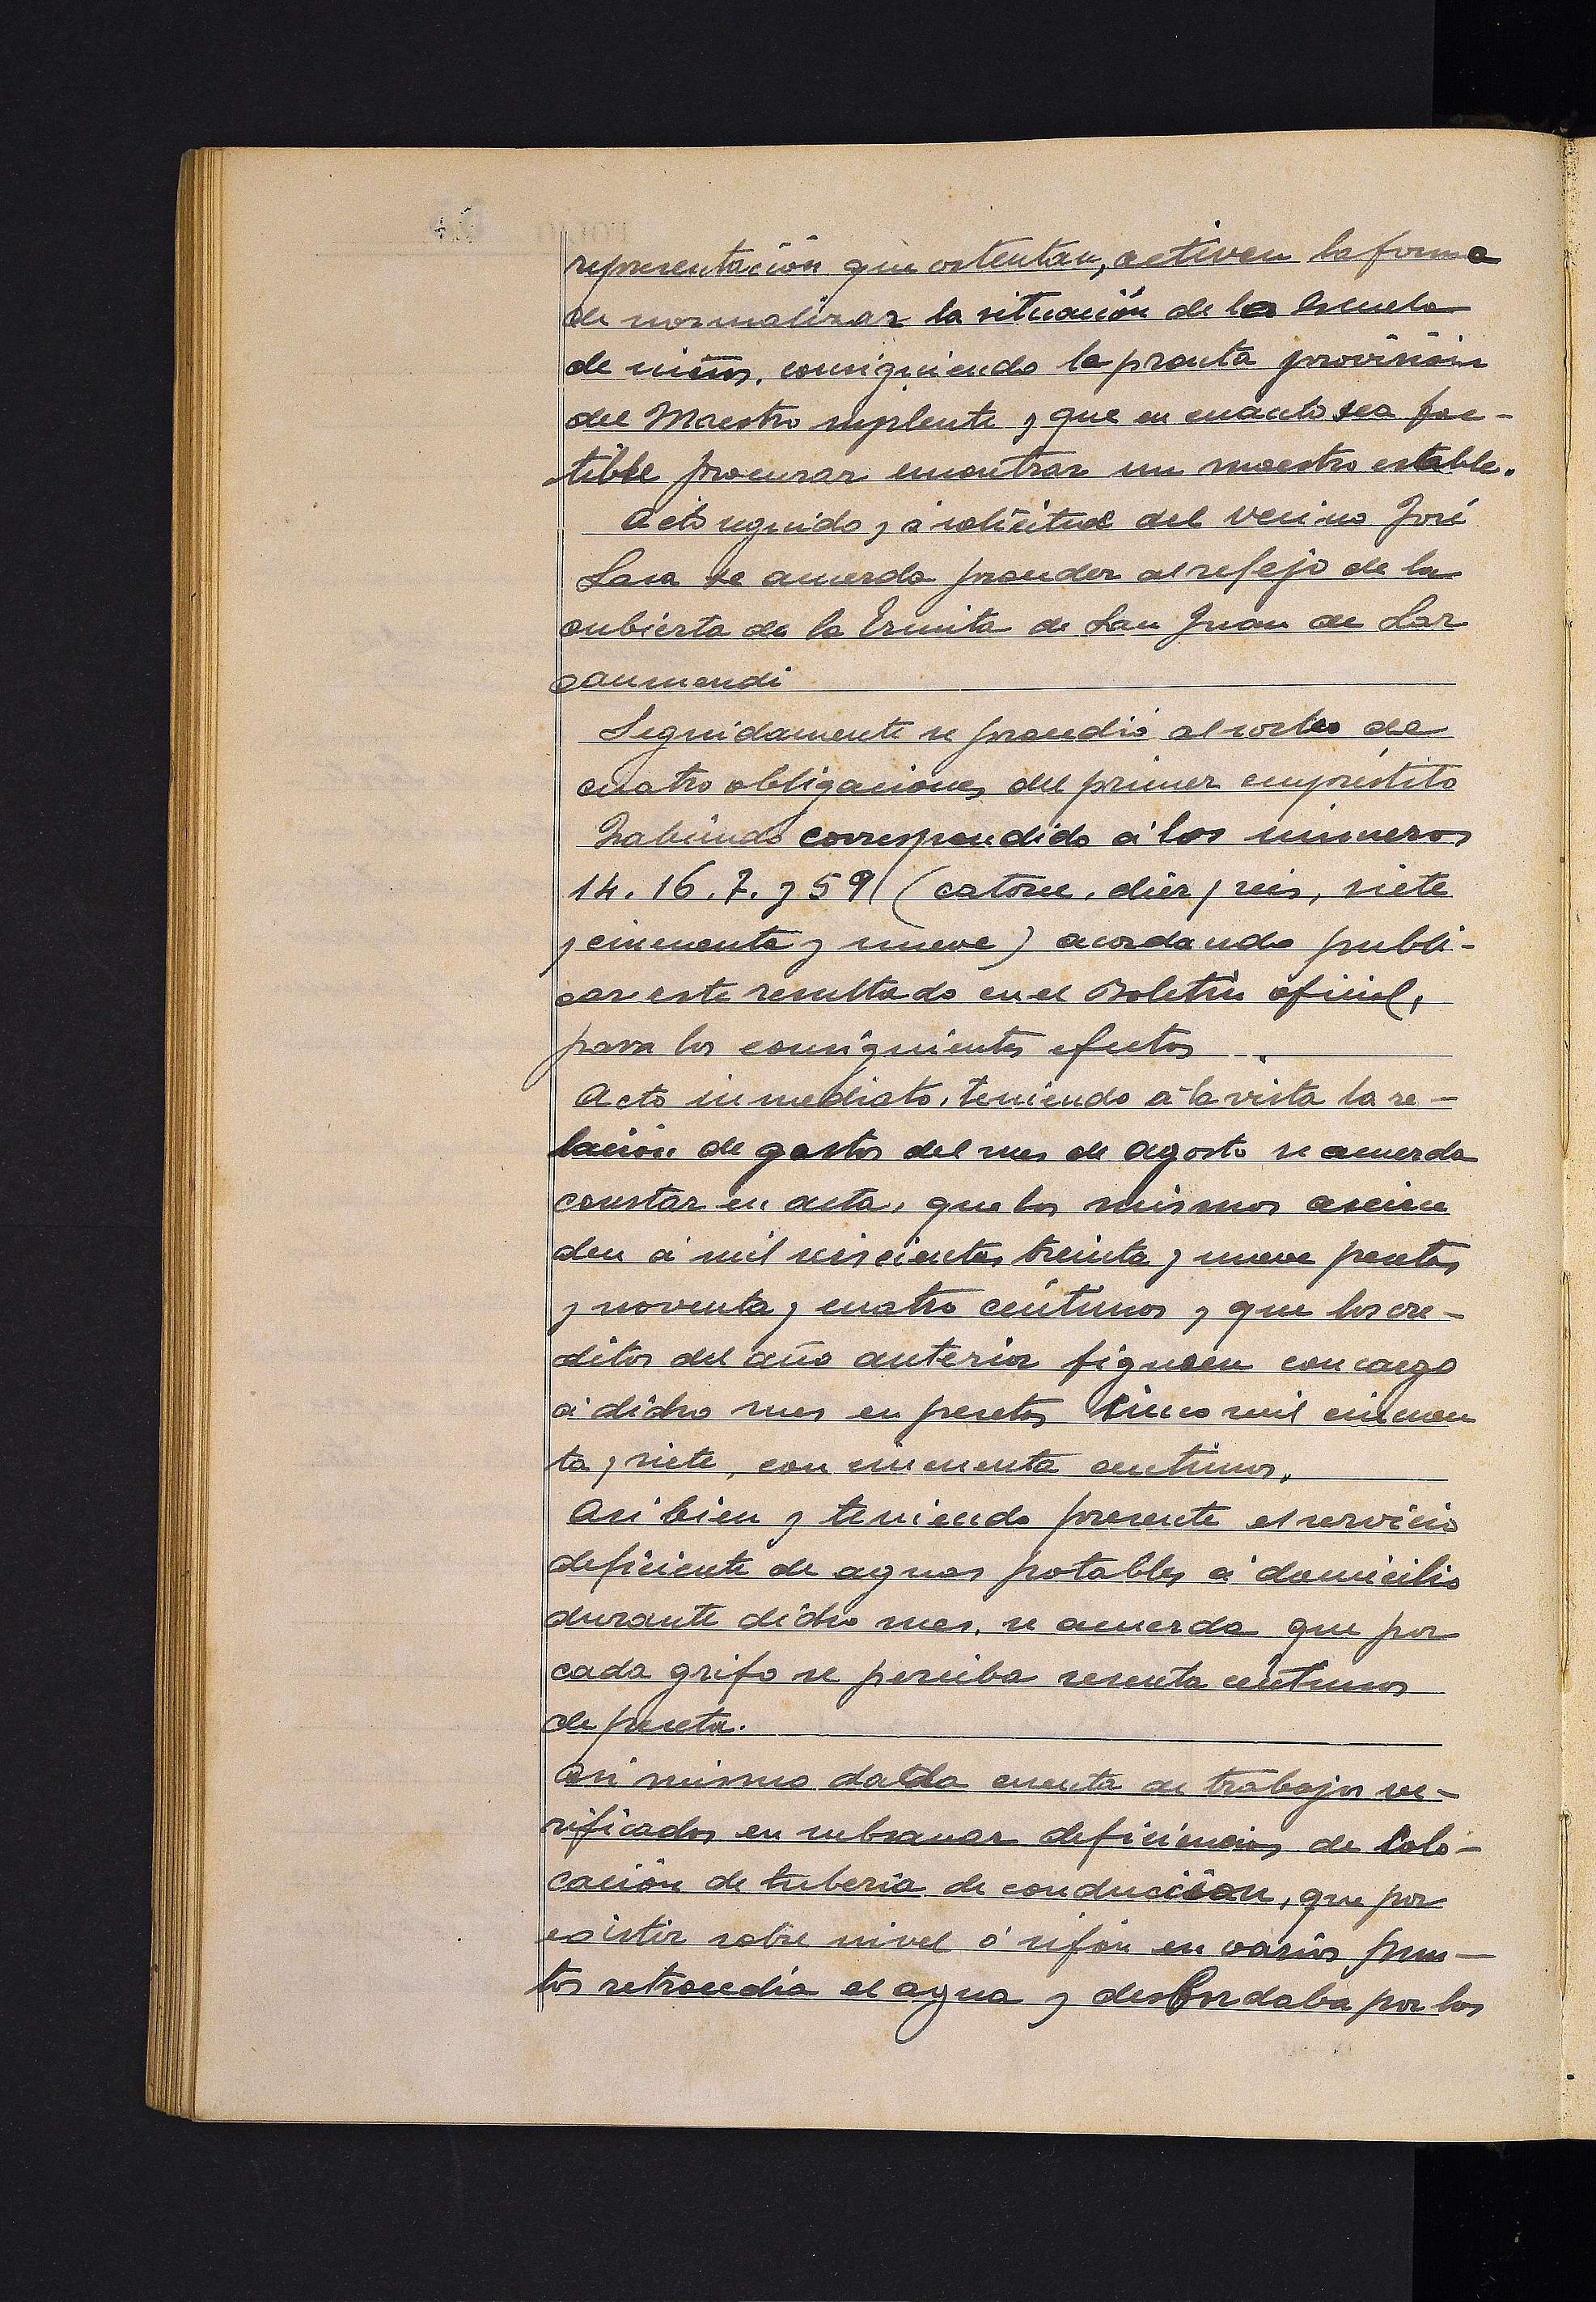 representación que ostentan, activen la forma
de normalizar la situación de la Escuela
de niños, consiguiendo la pronta provisión
del Maestro suplente y que en cuanto sea fac-
tible procurar encontrar un maestro estable.
Acto seguido y á solicitud del vecino José
Lasa se acuerda proceder al refejo de la
cubierta de la Ermita de San Juan de Lar
caumendi
Seguidamente se procedió al sorteo de
cuatro obligaciones del primer empréstito
habiendo correspondido á los números
14. 16. 7. y 59 (catorce, diez y seis, siete
y cincuenta y nueve) acordando publi-
car este resultado en el Boletín oficial,
para los consiguientes efectos
Acto inmediato, teniendo á la vista la re-
lación de gastos del mes de Agosto se acuerda
constar en acta, que los mismos ascien
den á mil seiscientas treinta y nueve pesetas
y noventa y cuatro céntimos y que los cre-
ditos del año anterior figuren con cargo
á dicho mes en pesetas cinco mil cincuen
ta y siete, con cincuenta centimos.
Asi bien y teniendo presente el servicio
deficiente de aguas potables á domicilio
durante dicho mes, se acuerda que por
cada grifo se perciba sesenta céntimos
de peseta.
Asi mismo dada cuenta de trabajos ve-
rificados en subsanar deficiencias de Colo-
cación de tuberia de conduccion, que por
existir sobre nivel ó sifón en varios pun-
tos retrocedia el agua y desbordaba por los